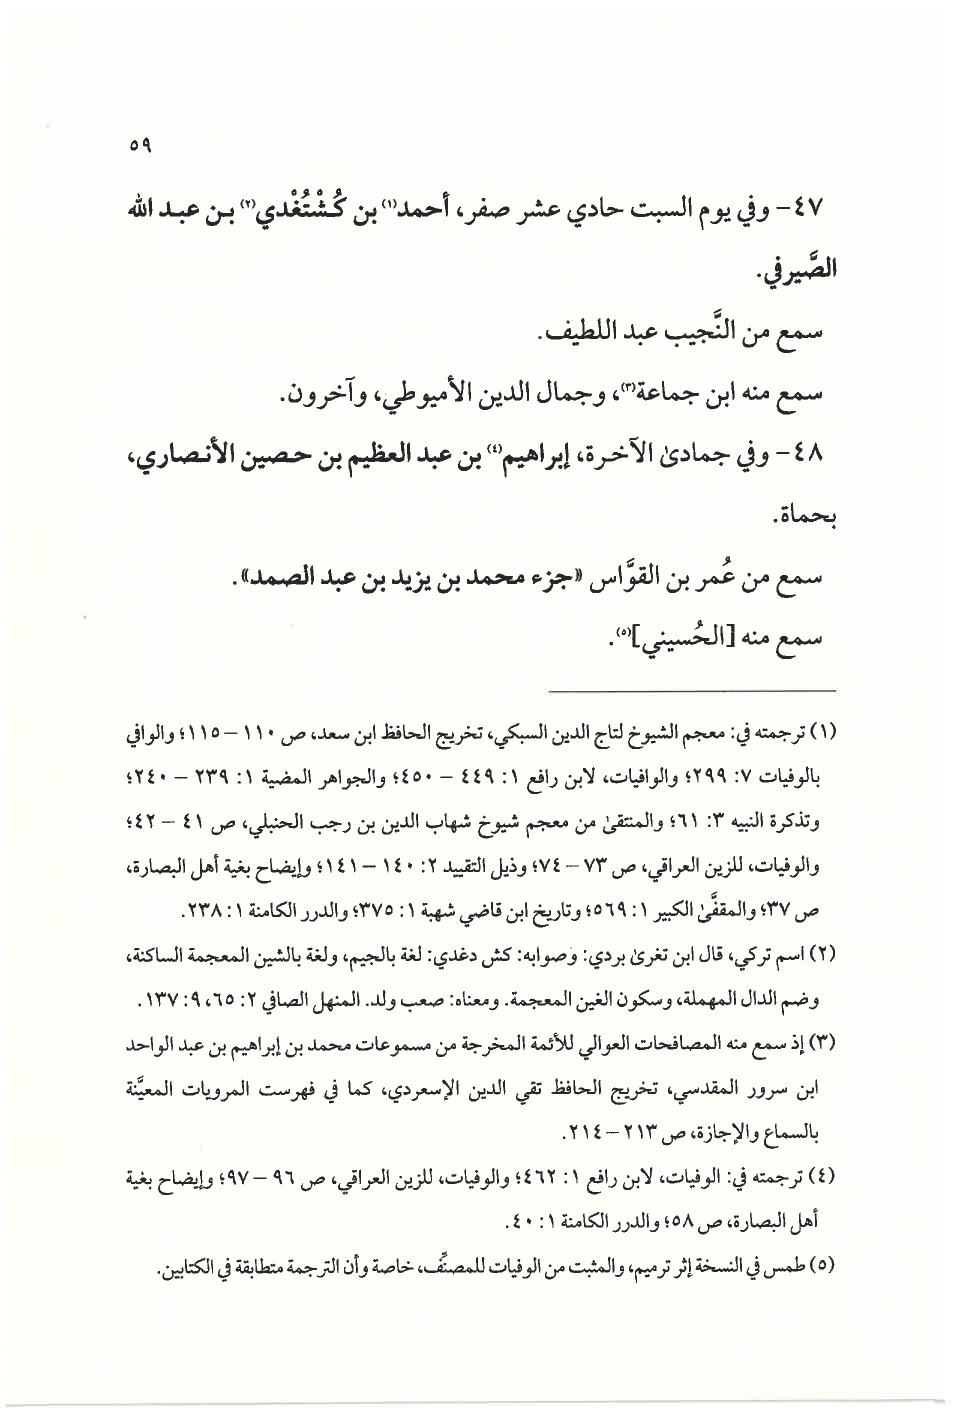 ٥٩
٤٧ – وفي يوم السبت حادي عشر صفر، أحمد(١) بن كُشْتُغْدي(٢) بن عبد الله
الصَّيرفي.
سمع من النَّجيب عبد اللطيف.
سمع منه ابن جماعة(٣)، وجمال الدين الأميوطي، وآخرون.
٤٨ – وفي جمادىٰ الآخرة، إبراهيم(٤) بن عبد العظيم بن حصين الأنصاري،
بحماة.
سمع من عُمر بن القوَّاس «جزء محمد بن يزيد بن عبد الصمد».
سمع منه [الحُسيني](٥).
(١) ترجمته في: معجم الشيوخ لتاج الدين السبكي، تخريج الحافظ ابن سعد، ص ١١٠ – ١١٥؛ والوافي
بالوفيات ٧: ٢٩٩؛ والوافيات، لابن رافع ١: ٤٤٩ – ٤٥٠؛ والجواهر المضية ١: ٢٣٩ – ٢٤٠؛
وتذكرة النبيه ٣: ٦١؛ والمنتقىٰ من معجم شيوخ شهاب الدين بن رجب الحنبلي، ص ٤١ – ٤٢؛
والوفيات، للزين العراقي، ص ٧٣ – ٧٤؛ وذيل التقييد ٢: ١٤٠ – ١٤١؛ وإيضاح بغية أهل البصارة،
ص ٣٧؛ والمقفَّىٰ الكبير ١: ٥٦٩؛ وتاريخ ابن قاضي شهبة ١: ٣٧٥؛ والدرر الكامنة ١: ٢٣٨.
(٢) اسم تركي، قال ابن تغرىٰ بردي: وصوابه: كش دغدي: لغة بالجيم، ولغة بالشين المعجمة الساكنة،
وضم الدال المهملة، وسكون الغين المعجمة. ومعناه: صعب ولد. المنهل الصافي ٢: ٦٥، ٩: ١٣٧.
(٣) إذ سمع منه المصافحات العوالي للأئمة المخرجة من مسموعات محمد بن إبراهيم بن عبد الواحد
ابن سرور المقدسي، تخريج الحافظ تقي الدين الإسعردي، كما في فهرست المرويات المعيَّنة
بالسماع والإجازة، ص ٢١٣ – ٢١٤.
(٤) ترجمته في: الوفيات، لابن رافع ١: ٤٦٢؛ والوفيات، للزين العراقي، ص ٩٦ – ٩٧؛ وإيضاح بغية
أهل البصارة، ص ٥٨؛ والدرر الكامنة ١: ٤٠.
(٥) طمس في النسخة إثر ترميم، والمثبت من الوفيات للمصنِّف، خاصة وأن الترجمة متطابقة في الكتابين.